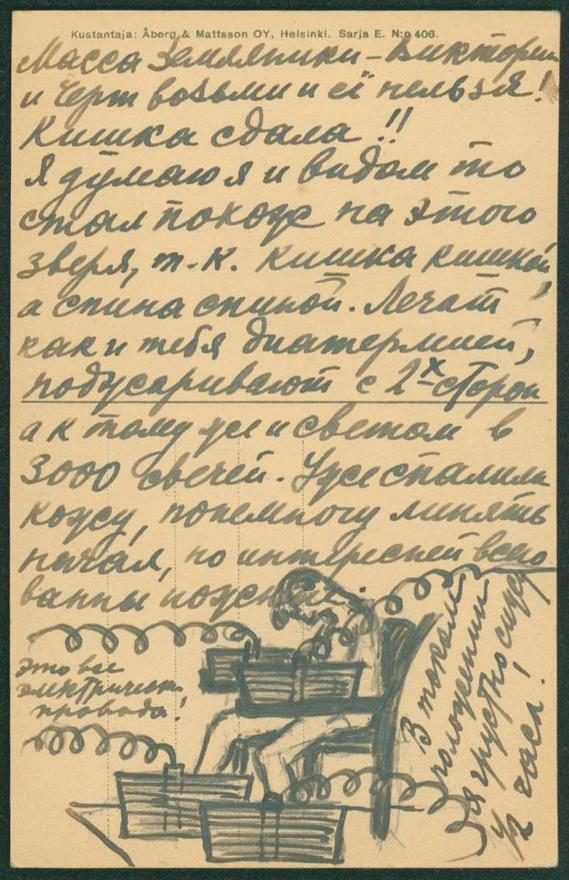 Kustantaja: Åberg & Mattsson OY, Helsinki. Sarja E. N:o 406.
Масса Земляники-Виктории
и Черт возьми и её нельзя!
Кишка сдала!!
Я думаю я и видом то
стал похож на этого
зверя, т.к. кишка кишкой,
а спина спиной. Лечат
как и тебя диатермией,
поджаривают с 2х сторон
а к тому же и светом в
3000 свечей. Уже спалили
кожу, понемногу линять
начал, но интересней всего
ванны
Это все
электрическ.
провода!
В таком
положении
я грустно сижу
1/2 часа!